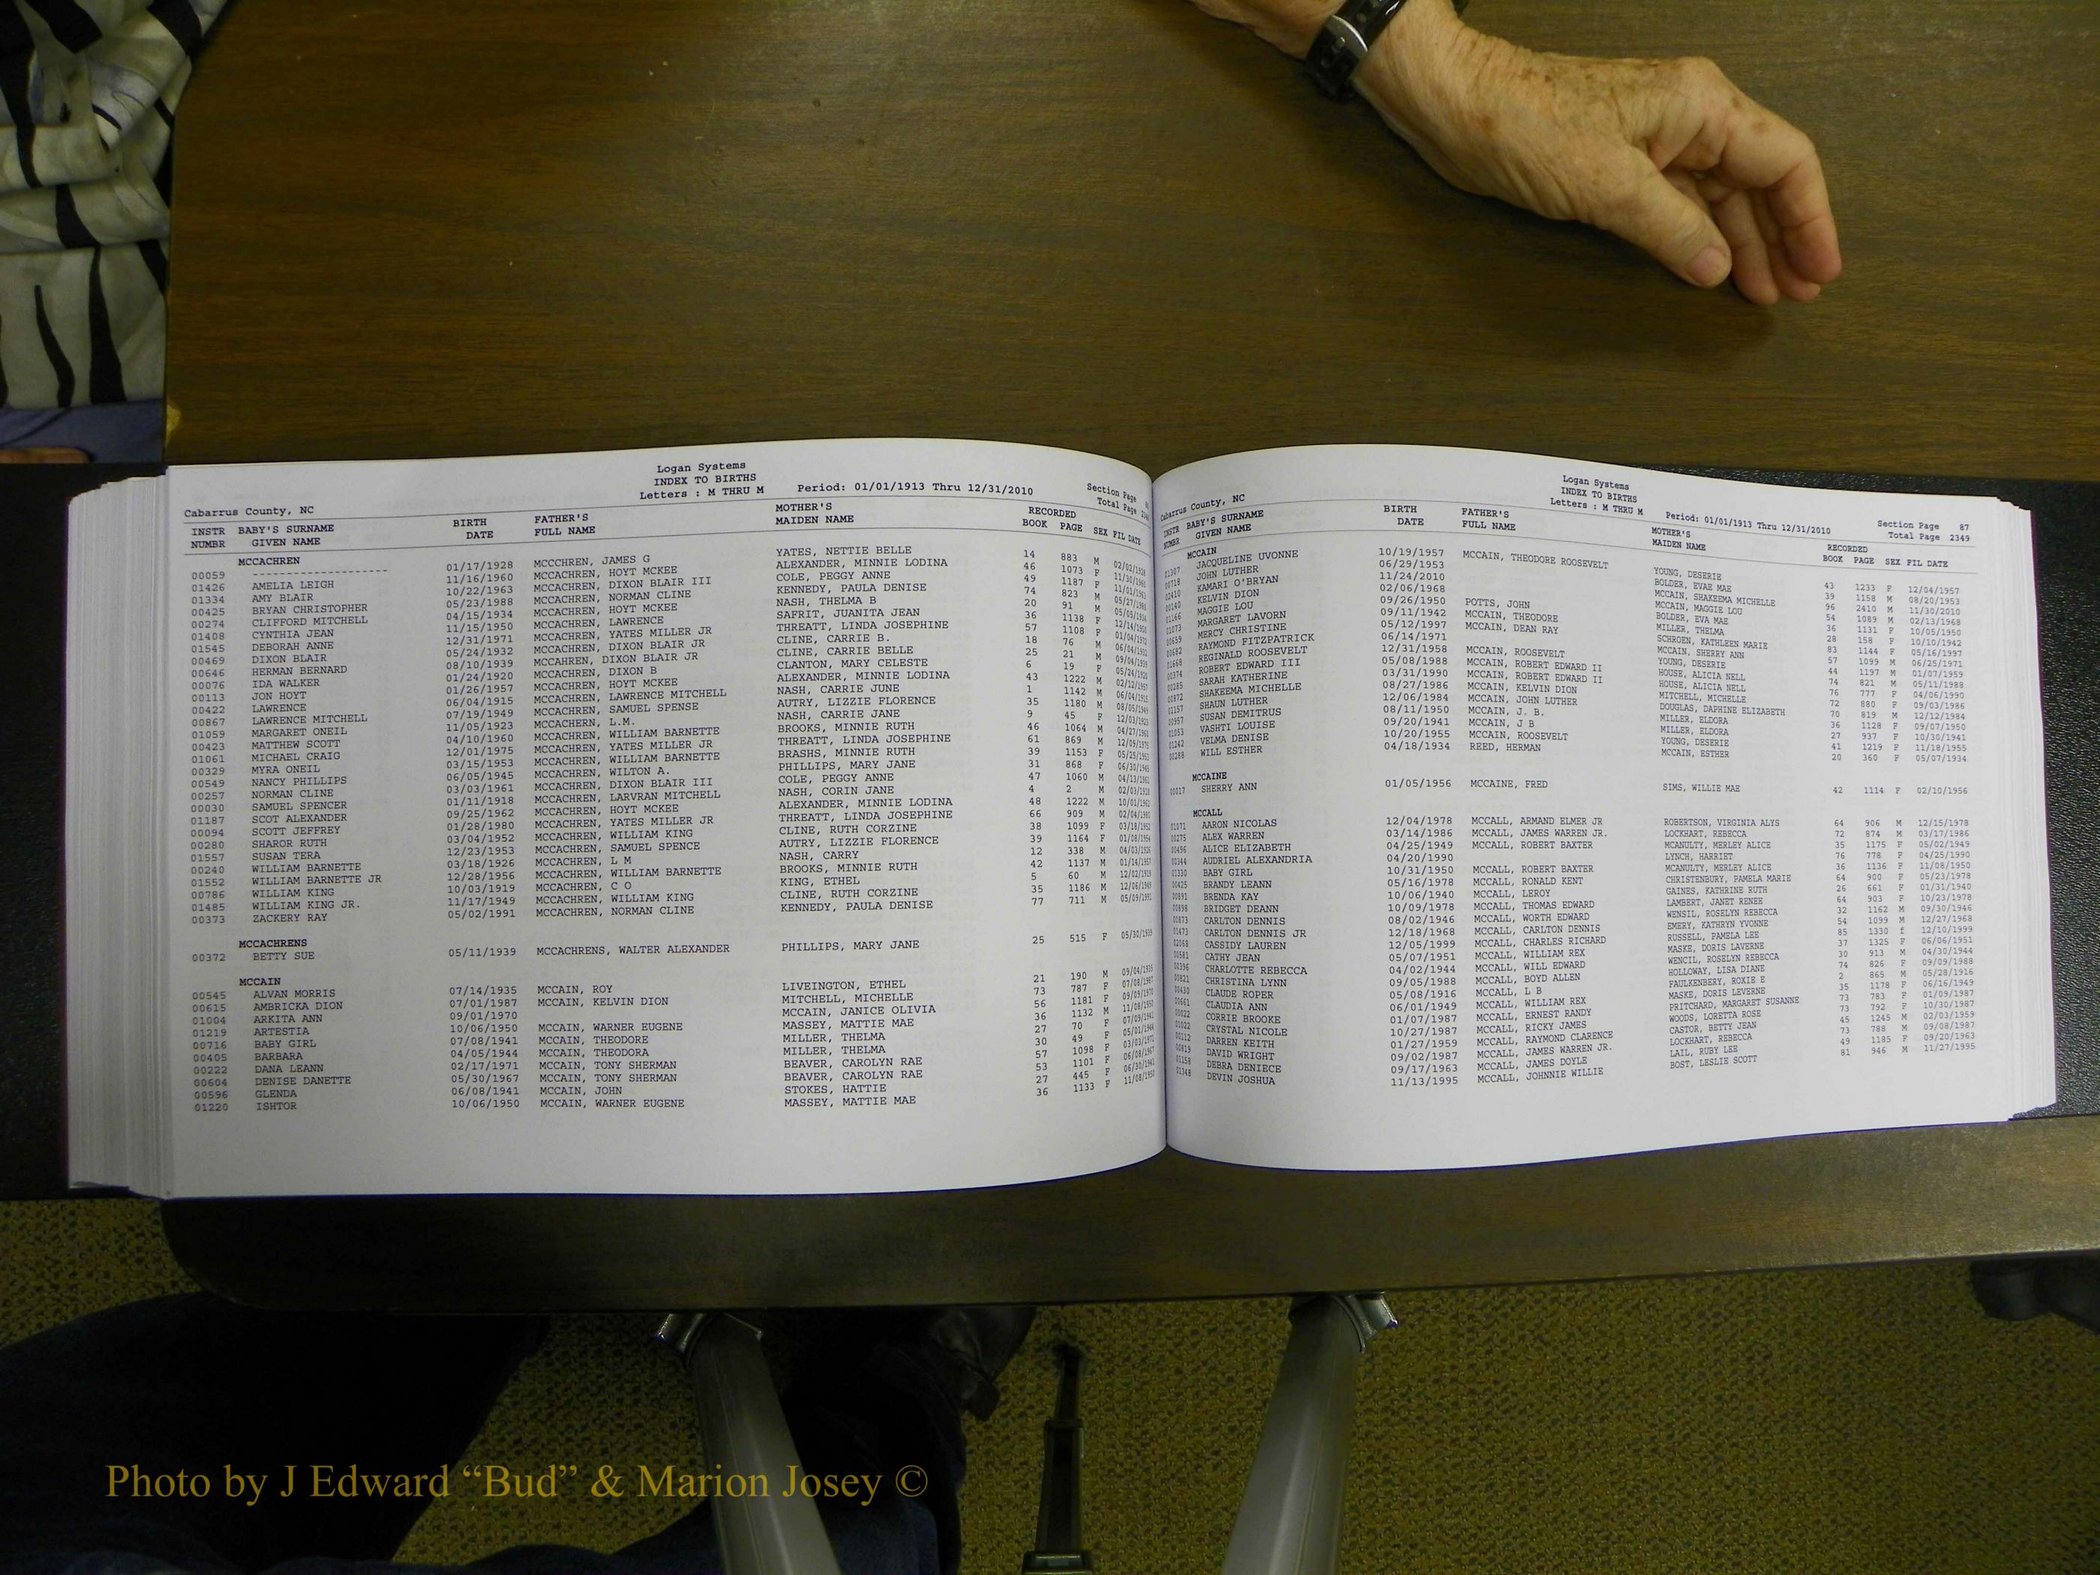 Logan Systems
INDEX TO BIRTHS
Letters : M THRU M Period: 01/01/1913 Thru 12/31/2010 Section Page
Cabarrus County, NC Total Page
INSTR BABY'S SURNAME BIRTH FATHER'S MOTHER'S RECORDED
NUMBR GIVEN NAME DATE FULL NAME MAIDEN NAME BOOK PAGE SEX FIL DATE
MCCACHREN
00059 -------------------- 01/17/1928 MCCCHREN, JAMES G YATES, NETTIE BELLE 14 883 M
01426 AMELIA LEIGH 11/16/1960 MCCACHREN, HOYT MCKEE ALEXANDER, MINNIE LODINA 46 1073 F
01334 AMY BLAIR 10/22/1963 MCCACHREN, DIXON BLAIR III COLE, PEGGY ANNE 49 1187 F
00425 BRYAN CHRISTOPHER 05/23/1988 MCCACHREN, NORMAN CLINE KENNEDY, PAULA DENISE 74 823 M
00274 CLIFFORD MITCHELL 04/15/1934 MCCACHREN, HOYT MCKEE NASH, THELMA B 20 91 M
01408 CYNTHIA JEAN 11/15/1950 MCCACHREN, LAWRENCE SAFRIT, JUANITA JEAN 36 1138 F
01545 DEBORAH ANNE 12/31/1971 MCCACHREN, YATES MILLER JR THREATT, LINDA JOSEPHINE 57 1108 F
00469 DIXON BLAIR 05/24/1932 MCCACHREN, DIXON BLAIR JR CLINE, CARRIE B. 18 76 M
00646 HERMAN BERNARD 08/10/1939 MCCAHREN, DIXON BLAIR JR CLINE, CARRIE BELLE 25 21 M
00076 IDA WALKER 01/24/1920 MCCACHREN, DIXON B CLANTON, MARY CELESTE 6 19 F
00113 JON HOYT 01/26/1957 MCCACHREN, HOYT MCKEE ALEXANDER, MINNIE LODINA 43 1222 M
00422 LAWRENCE 06/04/1915 MCCACHREN, LAWRENCE MITCHELL NASH, CARRIE JUNE 1 1142 M
00867 LAWRENCE MITCHELL 07/19/1949 MCCACHREN, SAMUEL SPENSE AUTRY, LIZZIE FLORENCE 35 1180 M
01059 MARGARET ONEIL 11/05/1923 MCCACHERN, L.M. NASH, CARRIE JANE 9 45 F
00423 MATTHEW SCOTT 04/10/1960 MCCACHREN, WILLIAM BARNETTE BROOKS, MINNIE RUTH 46 1064 M
01061 MICHAEL CRAIG 12/01/1975 MCCACHREN, YATES MILLER JR THREATT, LINDA JOSEPHINE 61 869 M
00329 MYRA ONEIL 03/15/1953 MCCACHREN, WILLIAM BARNETTE BRASHS, MINNIE RUTH 39 1153 F
00549 NANCY PHILLIPS 06/05/1945 MCCACHREN, WILTON A. PHILLIPS, MARY JANE 31 868 F
00257 NORMAN CLINE 03/03/1961 MCCACHREN, DIXON BLAIR III COLE, PEGGY ANNE 47 1060 M
00030 SAMUEL SPENCER 01/11/1918 MCCACHREN, LARVRAN MITCHELL NASH, CORIN JANE 4 2 M
01187 SCOT ALEXANDER 09/25/1962 MCCACHREN, HOYT MCKEE ALEXANDER, MINNIE LODINA 48 1222 M
00094 SCOTT JEFFREY 01/28/1980 MCCACHREN, YATES MILLER JR THREATT, LINDA JOSEPHINE 66 909 M
00280 SHAROR RUTH 03/04/1952 MCCACHREN, WILLIAM KING CLINE, RUTH CORZINE 38 1099 F
01557 SUSAN TERA 12/23/1953 MCCACHREN, SAMUEL SPENCE AUTRY, LIZZIE FLORENCE 39 1164 F
00240 WILLIAM BARNETTE 03/18/1926 MCCACHREN, L M NASH, CARRY 12 338 M
01552 WILLIAM BARNETTE JR 12/28/1956 MCCACHREN, WILLIAM BARNETTE BROOKS, MINNIE RUTH 42 1137 M
00786 WILLIAM KING 10/03/1919 MCCACHREN, C O KING, ETHEL 5 60 M
01485 WILLIAM KING JR. 11/17/1949 MCCACHREN, WILLIAM KING CLINE, RUTH CORZINE 35 1186 M
00373 ZACKERY RAY 05/02/1991 MCCACHREN, NORMAN CLINE KENNEDY, PAULA DENISE 77 711 M
MCCACHRENS
00372 BETTY SUE 05/11/1939 MCCACHRENS, WALTER ALEXANDER PHILLIPS, MARY JANE 25 515 F 05/30/1939
MCCAIN
00545 ALVAN MORRIS 07/14/1935 MCCAIN, ROY LIVEINGTON, ETHEL 21 190 M
00615 AMBRICKA DION 07/01/1987 MCCAIN, KELVIN DION MITCHELL, MICHELLE 73 787 F
01004 ARKITA ANN 09/01/1970 MCCAIN, JANICE OLIVIA 56 1181 F
01219 ARTESTIA 10/06/1950 MCCAIN, WARNER EUGENE MASSEY, MATTIE MAE 36 1132 M
00716 BABY GIRL 07/08/1941 MCCAIN, THEODORE MILLER, THELMA 27 70 F
00405 BARBARA 04/05/1944 MCCAIN, THEODORA MILLER, THELMA 30 49 F
00222 DANA LEANN 02/17/1971 MCCAIN, TONY SHERMAN BEAVER, CAROLYN RAE 57 1098 F
00604 DENISE DANETTE 05/30/1967 MCCAIN, TONY SHERMAN BEAVER, CAROLYN RAE 53 1101 F
00596 GLENDA 06/08/1941 MCCAIN, JOHN STOKES, HATTIE 27 445 F
01220 ISHTOR 10/06/1950 MCCAIN, WARNER EUGENE MASSEY, MATTIE MAE 36 1133 F
Logan Systems
INDEX TO BIRTHS
Letters : M THRU M Period: 01/01/1913 Thru 12/31/2010 Section Page 87
Cabarrus County, NC Total Page 2349
INSTR BABY'S SURNAME BIRTH FATHER'S MOTHER'S RECORDED
NUMBR GIVEN NAME DATE FULL NAME MAIDEN NAME BOOK PAGE SEX FIL DATE
MCCAIN
01307 JACQUELINE UVONNE 10/19/1957 MCCAIN, THEODORE ROOSEVELT YOUNG, DESERIE 43 1233 F 12/04/1957
00718 JOHN LUTHER 06/29/1953 BOLDER, EVAE MAE 39 1158 M 08/20/1953
02410 KAMARI O'BRYAN 11/24/2010 MCCAIN, SHAKEEMA MICHELLE 96 2410 M 11/30/2010
00140 KELVIN DION 02/06/1968 MCCAIN, MAGGIE LOU 54 1089 M 02/13/1968
01166 MAGGIE LOU 09/26/1950 POTTS, JOHN BOLDER, EVA MAE 36 1131 F 10/05/1950
01073 MARGARET LAVORN 09/11/1942 MCCAIN, THEODORE MILLER, THELMA 28 158 F 10/10/1942
00659 MERCY CHRISTINE 05/12/1997 MCCAIN, DEAN RAY SCHROEN, KATHLEEN MARIE 83 1144 F 05/16/1997
00682 RAYMOND FITZPATRICK 06/14/1971 MCCAIN, SHERRY ANN 57 1099 M 06/25/1971
01668 REGINALD ROOSEVELT 12/31/1958 MCCAIN, ROOSEVELT YOUNG, DESERIE 44 1197 M 01/07/1959
00374 ROBERT EDWARD III 05/08/1988 MCCAIN, ROBERT EDWARD II HOUSE, ALICIA NELL 74 821 M 05/11/1988
00285 SARAH KATHERINE 03/31/1990 MCCAIN, ROBERT EDWARD II HOUSE, ALICIA NELL 76 777 F 04/06/1990
00872 SHAKEEMA MICHELLE 08/27/1986 MCCAIN, KELVIN DION MITCHELL, MICHELLE 72 880 F 09/03/1986
01157 SHAUN LUTHER 12/06/1984 MCCAIN, JOHN LUTHER DOUGLAS, DAPHINE ELIZABETH 70 819 M 12/12/1984
00957 SUSAN DEMITRUS 08/11/1950 MCCAIN, J. B. MILLER, ELDORA 36 1128 F 09/07/1950
01053 VASHTI LOUISE 09/20/1941 MCCAIN, J B MILLER, ELDORA 27 937 F 10/30/1941
01242 VELMA DENISE 10/20/1955 MCCAIN, ROOSEVELT YOUNG, DESERIE 41 1219 F 11/18/1955
00288 WILL ESTHER 04/18/1934 REED, HERMAN MCCAIN, ESTHER 20 360 F 05/07/1934
MCCAINE
00017 SHERRY ANN 01/05/1956 MCCAINE, FRED SIMS, WILLIE MAE 42 1114 F 02/10/1956
MCCALL
01071 AARON NICOLAS 12/04/1978 MCCALL, ARMAND ELMER JR ROBERTSON, VIRGINIA ALYS 64 906 M 12/15/1978
00275 ALEX WARREN 03/14/1986 MCCALL, JAMES WARREN JR. LOCKHART, REBECCA 72 874 M 03/17/1986
00496 ALICE ELIZABETH 04/25/1949 MCCALL, ROBERT BAXTER MCANULTY, MERLEY ALICE 35 1175 F 05/02/1949
00344 AUDRIEL ALEXANDRIA 04/20/1990 LYNCH, HARRIET 76 778 F 04/25/1990
01330 BABY GIRL 10/31/1950 MCCALL, ROBERT BAXTER MCANULTY, MERLEY ALICE 36 1136 F 11/08/1950
00425 BRANDY LEANN 05/16/1978 MCCALL, RONALD KENT CHRISTENBURY, PAMELA MARIE 64 900 F 05/23/1978
00891 BRENDA KAY 10/06/1940 MCCALL, LEROY GAINES, KATHRINE RUTH 26 661 F 01/31/1940
00898 BRIDGET DEANN 10/09/1978 MCCALL, THOMAS EDWARD LAMBERT, JANET RENEE 64 903 F 10/23/1978
00873 CARLTON DENNIS 08/02/1946 MCCALL, WORTH EDWARD WENSIL, ROSELYN REBECCA 32 1162 M 09/30/1946
01473 CARLTON DENNIS JR 12/18/1968 MCCALL, CARLTON DENNIS EMERY, KATHRYN YVONNE 54 1099 M 12/27/1968
02068 CASSIDY LAUREN 12/05/1999 MCCALL, CHARLES RICHARD RUSSELL, PAMELA LEE 85 1330 f 12/10/1999
00581 CATHY JEAN 05/07/1951 MCCALL, WILLIAM REX MASKE, DORIS LAVERNE 37 1325 F 06/06/1951
00396 CHARLOTTE REBECCA 04/02/1944 MCCALL, WILL EDWARD WENCIL, ROSELYN REBECCA 30 913 M 04/30/1944
00821 CHRISTINA LYNN 09/05/1988 MCCALL, BOYD ALLEN HOLLOWAY, LISA DIANE 74 826 F 09/09/1988
00430 CLAUDE ROPER 05/08/1916 MCCALL, L B FAULKENBERY, ROXIE E 2 865 M 05/28/1916
00661 CLAUDIA ANN 06/01/1949 MCCALL, WILLIAM REX MASKE, DORIS LEVERNE 35 1178 F 06/16/1949
00022 CORRIE BROOKE 01/07/1987 MCCALL, ERNEST RANDY PRITCHARD, MARGARET SUSANNE 73 783 F 01/09/1987
01022 CRYSTAL NICOLE 10/27/1987 MCCALL, RICKY JAMES WOODS, LORETTA ROSE 73 792 F 10/30/1987
00112 DARREN KEITH 01/27/1959 MCCALL, RAYMOND CLARENCE CASTOR, BETTY JEAN 45 1245 M 02/03/1959
00819 DAVID WRIGHT 09/02/1987 MCCALL, JAMES WARREN JR. LOCKHART, REBECCA 73 788 M 09/08/1987
01158 DEBRA DENIECE 09/17/1963 MCCALL, JAMES DOYLE LAIL, RUBY LEE 49 1185 F 09/20/1963
01348 DEVIN JOSHUA 11/13/1995 MCCALL, JOHNNIE WILLIE BOST, LESLIE SCOTT 81 946 M 11/27/1995
Photo by J Edward “Bud” & Marion Josey ©